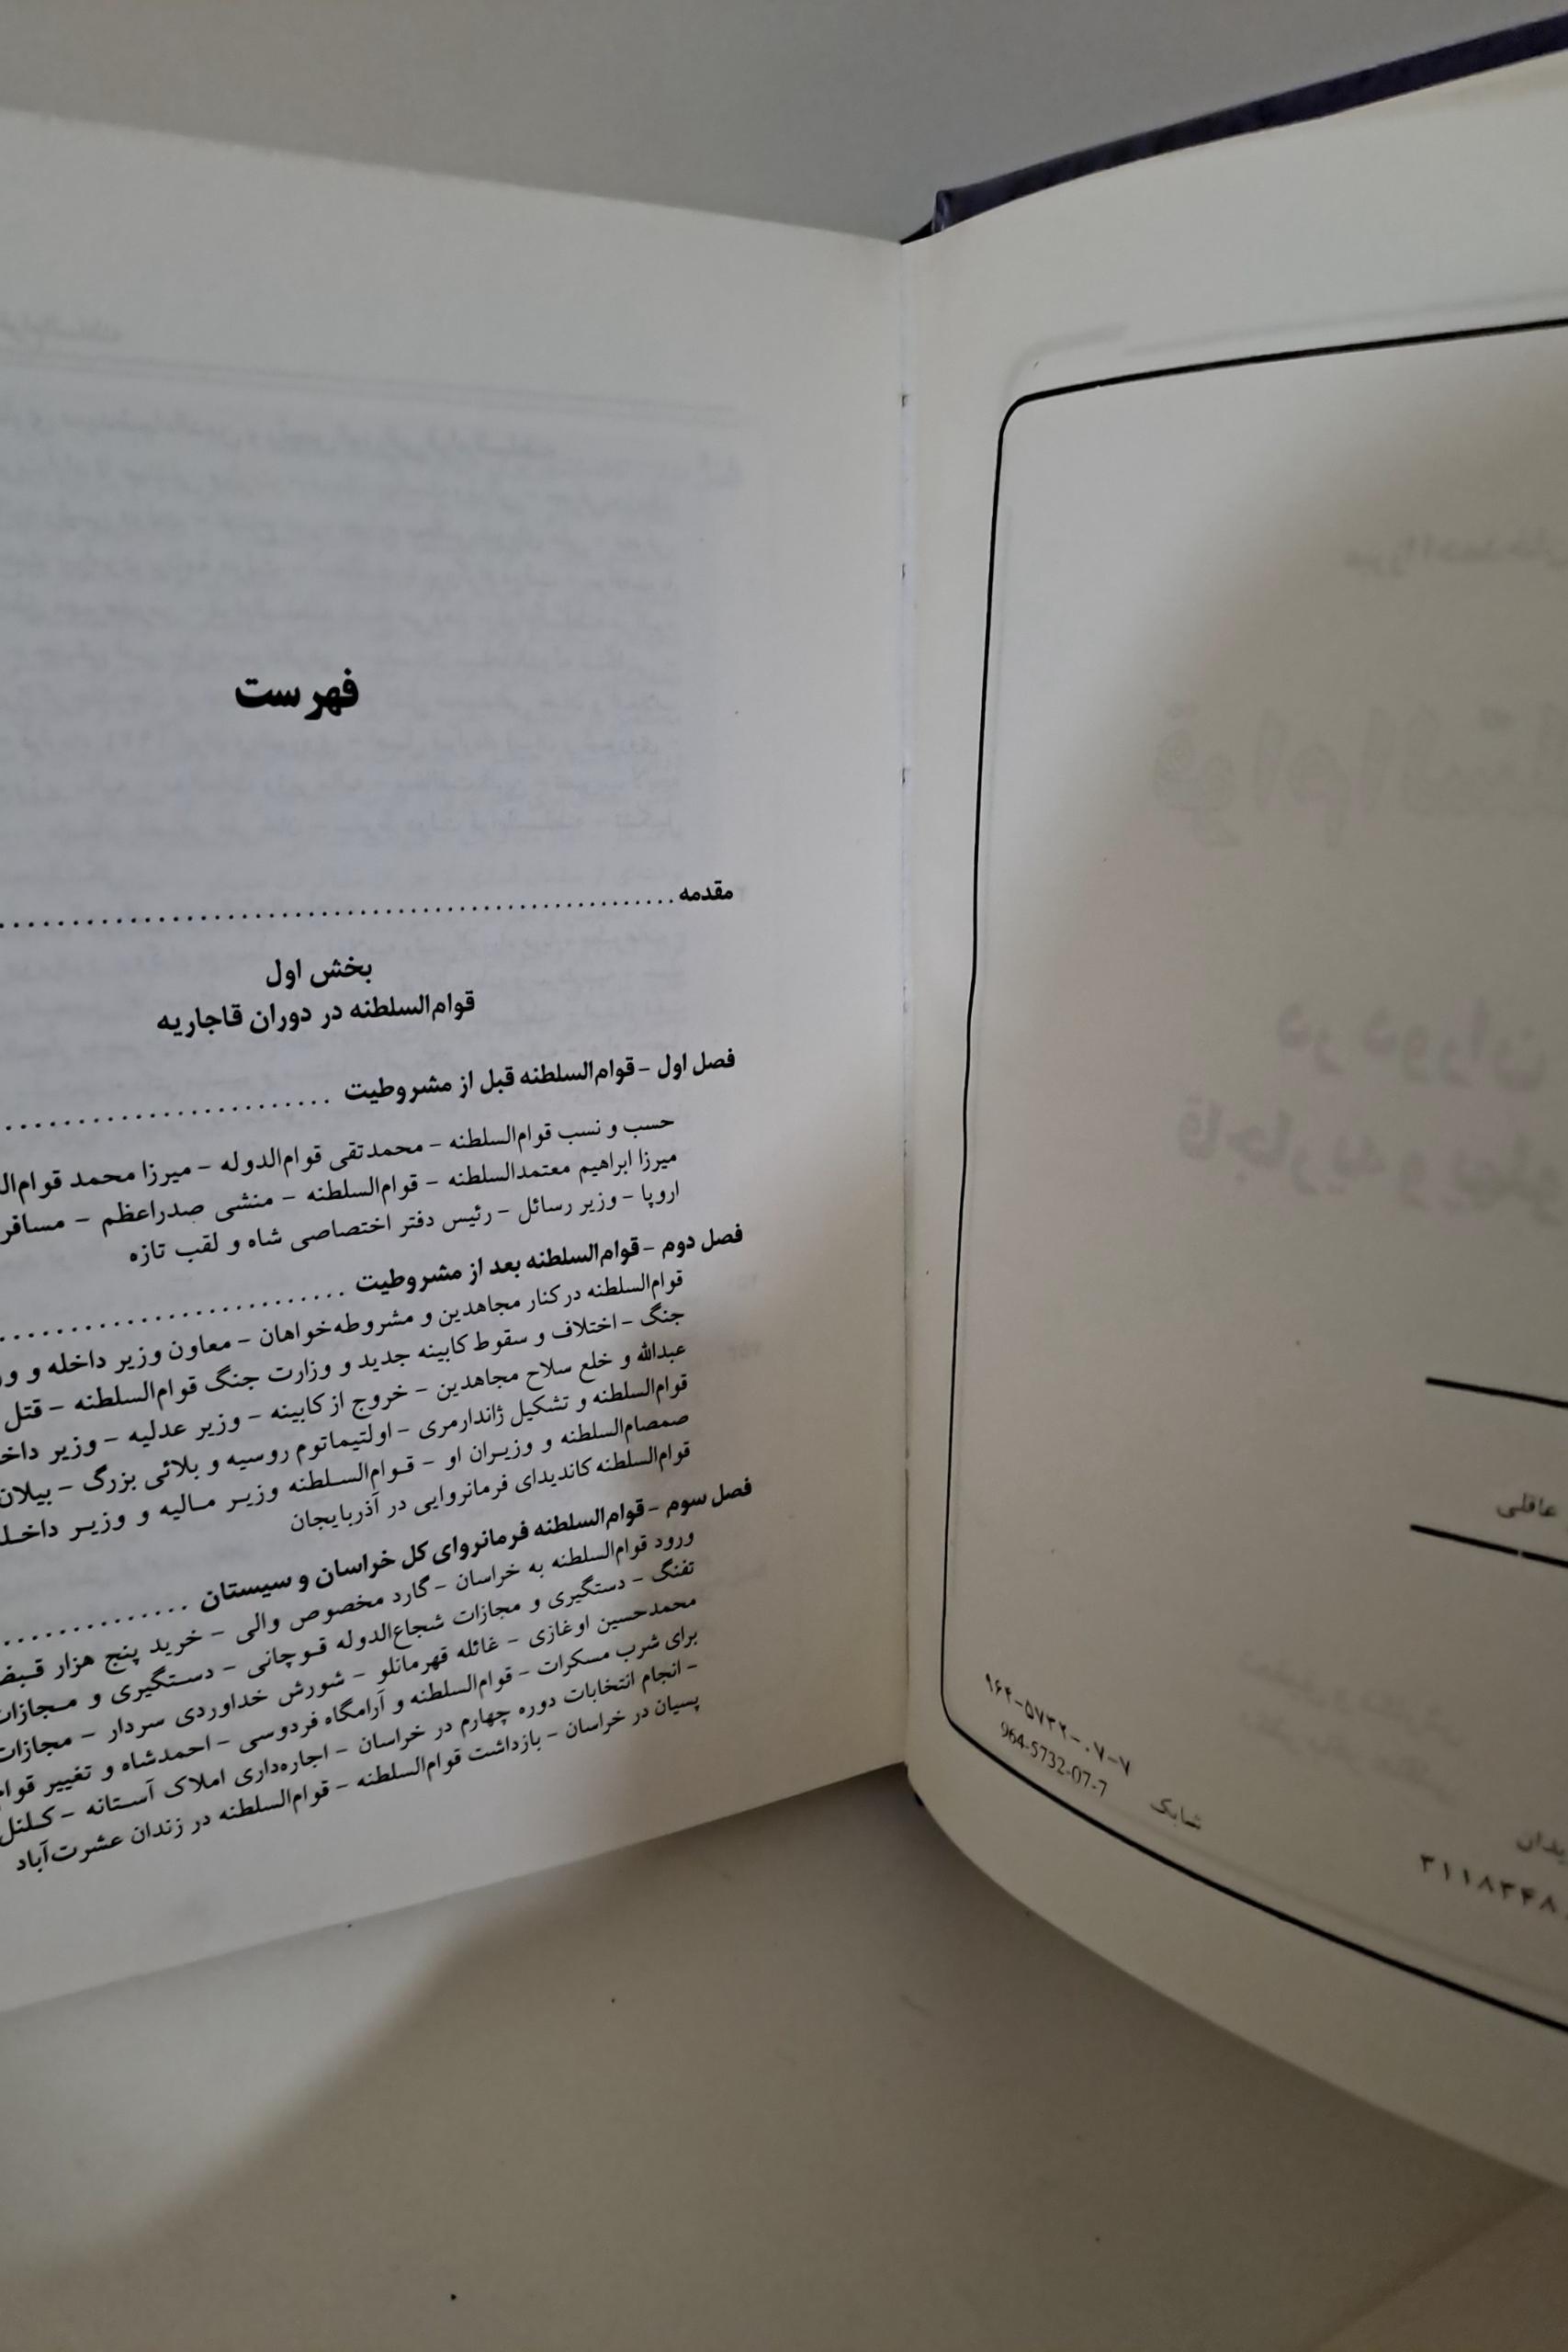 عاقلی
۹۶۴-۵۷۳۲-۰۷-۷
964-5732-07-7
شابک
فهرست
مقدمه
بخش اول
قوام‌السلطنه در دوران قاجاریه
فصل اول - قوام‌السلطنه قبل از مشروطیت
حسب و نسب قوام‌السلطنه - محمدتقی قوام‌الدوله - میرزا محمد
میرزا ابراهیم معتمدالسلطنه - قوام‌السلطنه - منشی صدراعظم -
اروپا - وزیر رسائل - رئیس دفتر اختصاصی شاه و لقب تازه
فصل دوم - قوام‌السلطنه بعد از مشروطیت
قوام‌السلطنه در کنار مجاهدین و مشروطه‌خواهان - معاون وزیر داخله و
جنگ - اختلاف و سقوط کابینه جدید و وزارت جنگ قوام‌السلطنه - قتل
عبدالله و خلع سلاح مجاهدین - خروج از کابینه - وزیر عدلیه - وزیر
قوام‌السلطنه و تشکیل ژاندارمری - اولتیماتوم روسیه و بلائی بزرگ - بیلان
صمصام‌السلطنه و وزیران او - قوام‌السلطنه وزیر مالیه و وزیر
قوام‌السلطنه کاندیدای فرمانروایی در آذربایجان
فصل سوم - قوام‌السلطنه فرمانروای کل خراسان و سیستان
ورود قوام‌السلطنه به خراسان - گارد مخصوص والی - خرید پنج هزار
تفنگ - دستگیری و مجازات شجاع‌الدوله قوچانی - دستگیری و مجازات
محمدحسین اوغازی - غائله قهرمانلو - شورش خداوردی سردار - مجازات
برای شرب مسکرات - قوام‌السلطنه و آرامگاه فردوسی - احمدشاه و تغییر
- انجام انتخابات دوره چهارم در خراسان - اجاره‌داری املاک آستانه - کلنل
پسیان در خراسان - بازداشت قوام‌السلطنه - قوام‌السلطنه در زندان عشرت‌آباد